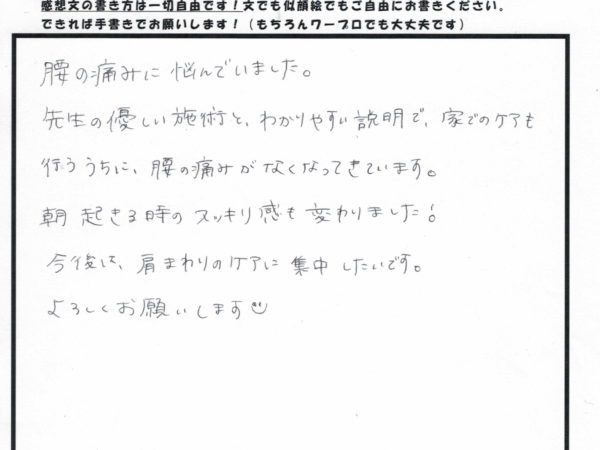 感想文の書き方は一切自由です！文でも似顔絵でもご自由にお書きください。
できれば手書きでお願いします！（もちろんワープロでも大丈夫です）
腰の痛みに悩んでいました。
先生の優しい施術と、わかりやすい説明で、家でのケアも
行ううちに、腰の痛みがなくなってきています。
朝起きる時のスッキリ感も変わりました！
今後は、肩まわりのケアに集中したいです。
よろしくお願いします